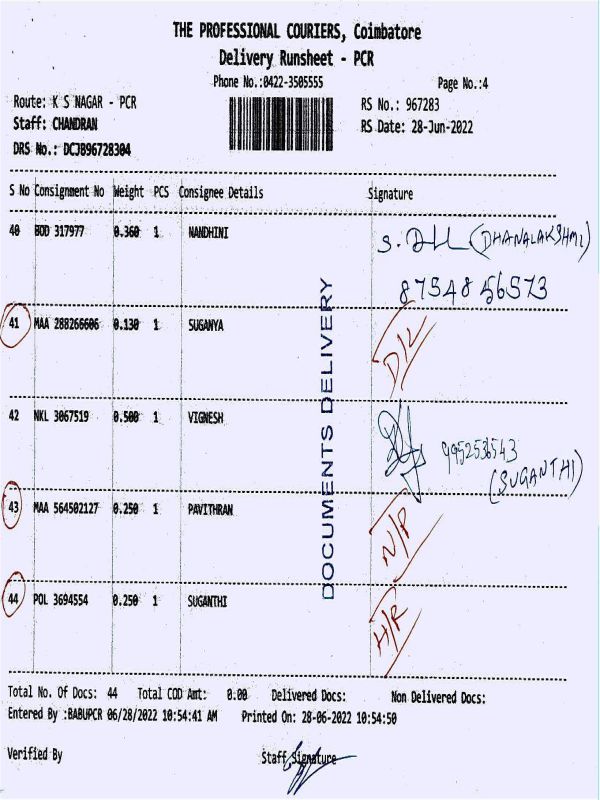 THE PROFESSIONAL COURIERS, Coimbatore
Delivery Runsheet - PCR
Phone No.:0422-3505555 Page No.:4
Route: K S NAGAR - PCR RS No.: 967283
Staff: CHANDRAN RS Date: 28-Jun-2022
DRS No.: DCJB96728304
S No Consignment No Weight PCS Consignee Details Signature
40 BDD 317977 0.360 1 NANDHINI S. (DHANALAKSHMI)
8754856573
41 MAA 288266606 0.130 1 SUGANYA D/L
42 NKL 3067519 0.500 1 VIGNESH 9952536543
(SUGANTHI)
43 MAA 564502127 0.250 1 PAVITHRAN N/P
44 POL 3694554 0.250 1 SUGANTHI H/R
DOCUMENTS DELIVERY
Total No. Of Docs: 44 Total COD Amt: 0.00 Delivered Docs: Non Delivered Docs:
Entered By :BABUPCR 06/28/2022 10:54:41 AM Printed On: 28-06-2022 10:54:50
Verified By Staff Signature